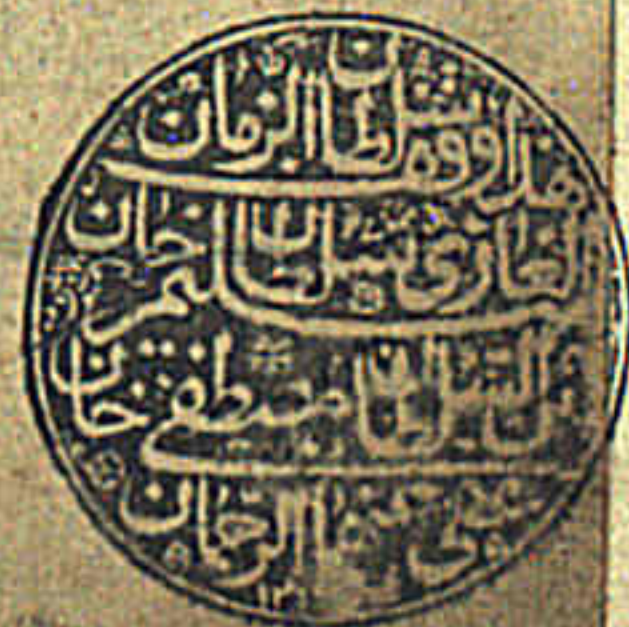 هذا وقف سلطان الزمان
الغازي سلطان سليم خان
بن السلطان مصطفى خان
عفى عنهما الرحمان